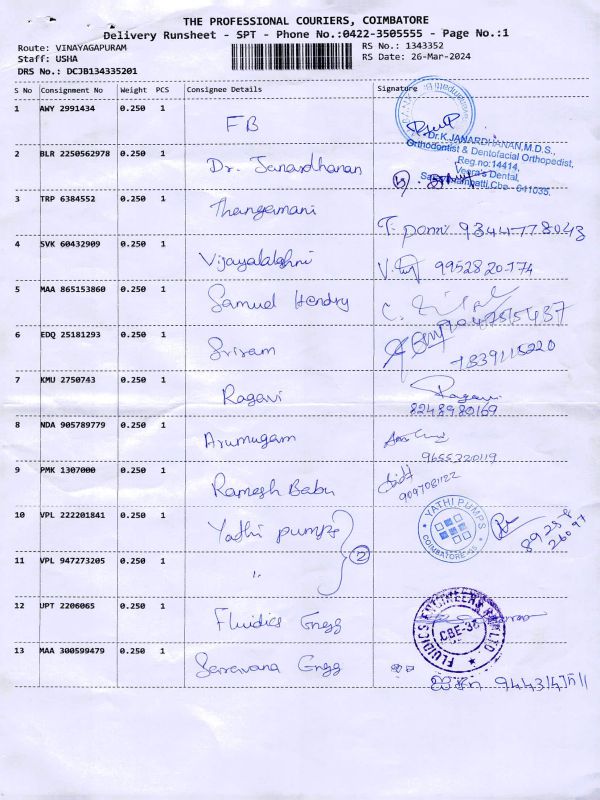 THE PROFESSIONAL COURIERS, COIMBATORE
Delivery Runsheet - SPT - Phone No.:0422-3505555 - Page No.:1
Route: VINAYAGAPURAM RS No.: 1343352
Staff: USHA RS Date: 26-Mar-2024
DRS No.: DCJB134335201
S No Consignment No Weight PCS Consignee Details Signature
1 AWY 2991434 0.250 1 FB
Dr.K.JANARDHANAN,M.D.S.,
Orthodontist & Dentofacial Orthopedist,
Reg.no:14414,
Veera's Dental,
Cbe - 641035.
2 BLR 2250562978 0.250 1 Dr. Janardhanan
3 TRP 6384552 0.250 1 Thangamani
T. ponni 9344778043
4 SVK 60432909 0.250 1 Vijayalalshmi
9952820774
5 MAA 865153860 0.250 1 Samuel Hendry
6 EDQ 25181293 0.250 1 Sriram
7 KMU 2750743 0.250 1 Ragavi
Ragavi
8248980169
8 NDA 905789779 0.250 1 Arumugam
9655320119
9 PMK 1307000 0.250 1 Ramesh Babu
10 VPL 222201841 0.250 1 Yathi pumps
YATHI PUMPS
COIMBATORE-35
11 VPL 947273205 0.250 1 "
2
12 UPT 2206065 0.250 1 Fluidics Engg
CBE-35
13 MAA 300599479 0.250 1 Saravana Engg